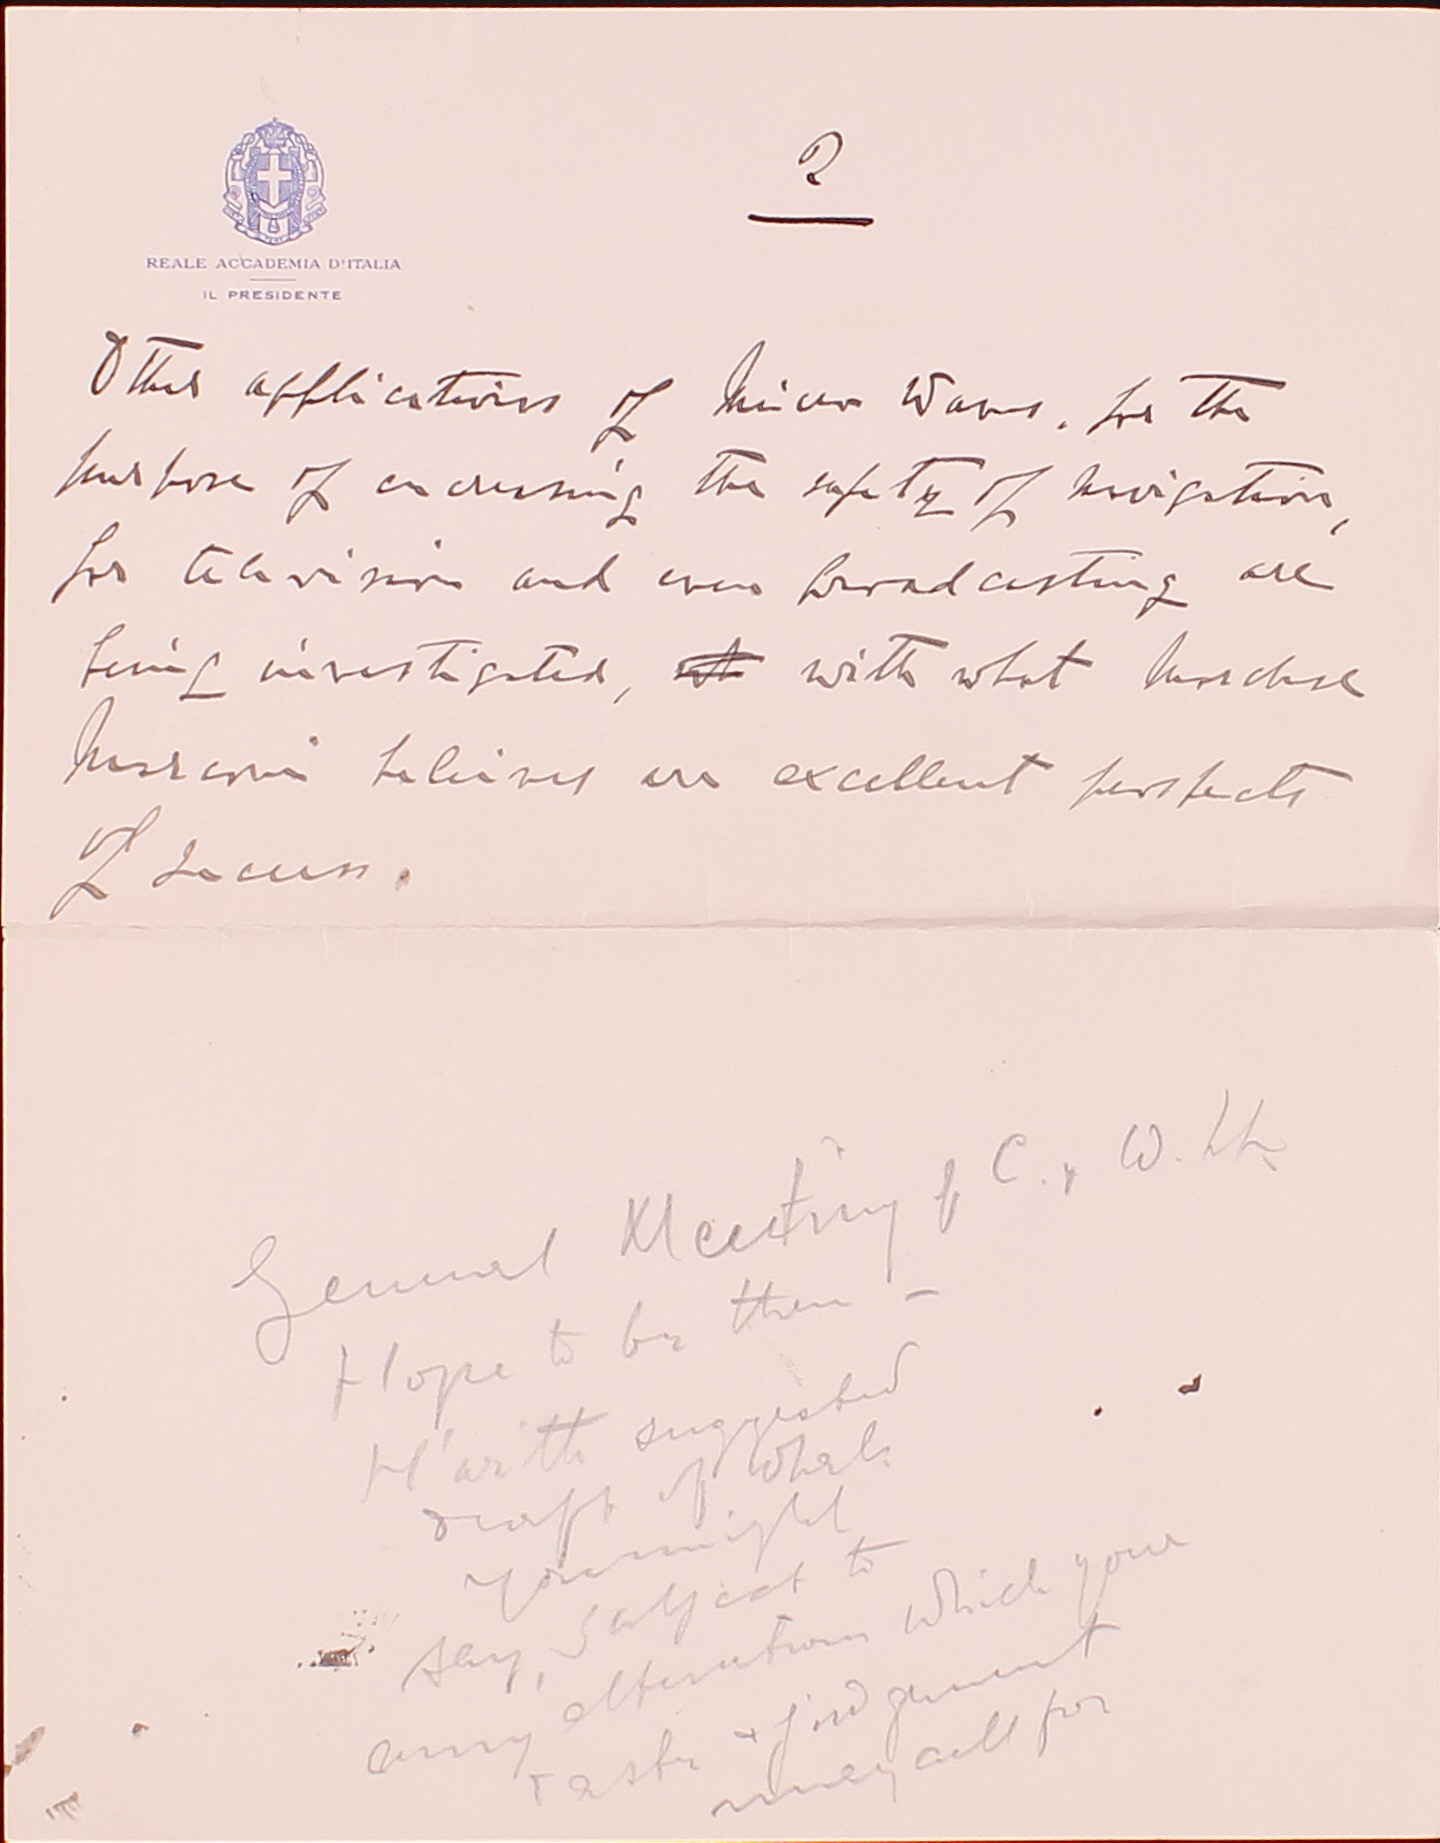 2
REALE ACCADEMIA D'ITALIA
IL PRESIDENTE
Other applications of Micro Waves, for the
purpose of increasing the safety of navigation,
for television and even broadcasting are
being investigated, with what Marchese
Marconi believes are excellent prospects
of success.
General Meeting of C. & W. Ltd
Hope to be there -
H'with suggested
draft of what
you might
say, subject to
any alterations which your
taste & judgement
may call for